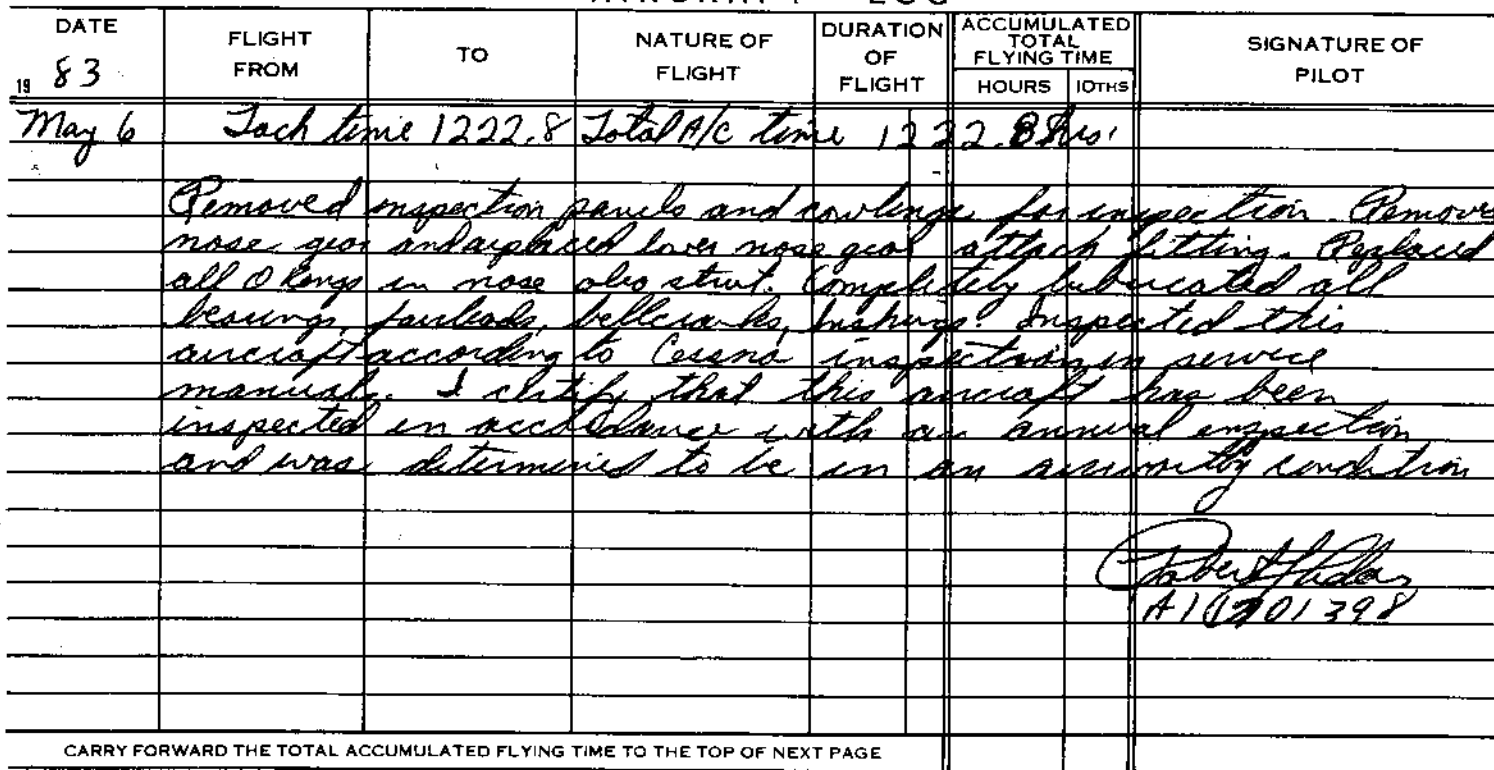 LOG
DATE
19 83
FLIGHT FROM
TO
NATURE OF FLIGHT
DURATION OF FLIGHT
ACCUMULATED TOTAL FLYING TIME
HOURS
10THS
SIGNATURE OF PILOT
May 6 Tach time 1222.8 Total A/C time 1222.8 hrs.
Removed inspection panels and cowlings for inspection. Removed
nose gear and replaced lower nose gear attach fitting. Replaced
all O Rings in nose oleo strut. Completely lubricated all
bearings, fairleads, bellcranks, bushings. Inspected this
aircraft according to Cessna inspection in service
manual. I certify that this aircraft has been
inspected in accordance with an annual inspection
and was determined to be in an airworthy condition
Robert
CARRY FORWARD THE TOTAL ACCUMULATED FLYING TIME TO THE TOP OF NEXT PAGE